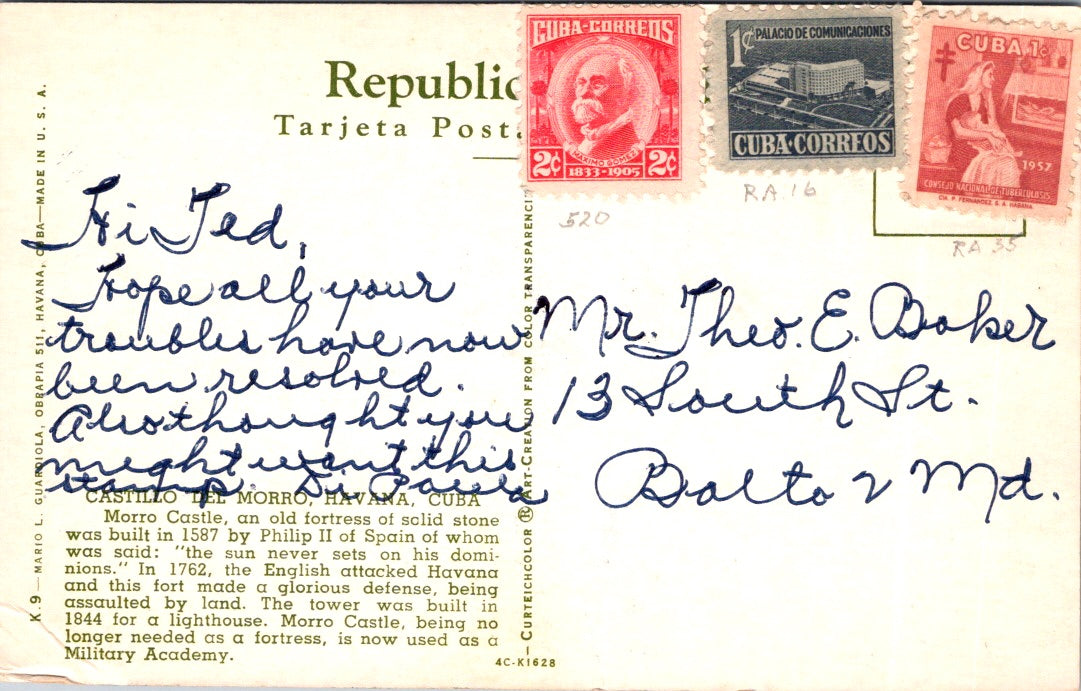 Republic
Tarjeta Posta
CUBA-CORREOS
MAXIMO GOMEZ
2¢ 2¢
1833-1905
1¢ PALACIO DE COMUNICACIONES
CUBA·CORREOS
CUBA 1c
1957
CONSEJO NACIONAL DE TUBERCULOSIS
CIA. P. FERNANDEZ S. A. HABANA
520
RA 16
RA 35
Hi Ted,
Hope all your
troubles have now
been resolved.
Also thought you
might want this
stamp.
Mr. Theo. E. Baker
13 South St.
Balto 2 Md.
CASTILLO DEL MORRO, HAVANA, CUBA
Morro Castle, an old fortress of solid stone
was built in 1587 by Philip II of Spain of whom
was said: "the sun never sets on his domi-
nions." In 1762, the English attacked Havana
and this fort made a glorious defense, being
assaulted by land. The tower was built in
1844 for a lighthouse. Morro Castle, being no
longer needed as a fortress, is now used as a
Military Academy.
4C-K1628
K.9—MARIO L. GUARDIOLA, OBRAPIA 511, HAVANA, CUBA—MADE IN U. S. A.
CURTEICHCOLOR ® ART-CREATION FROM COLOR TRANSPARENCI